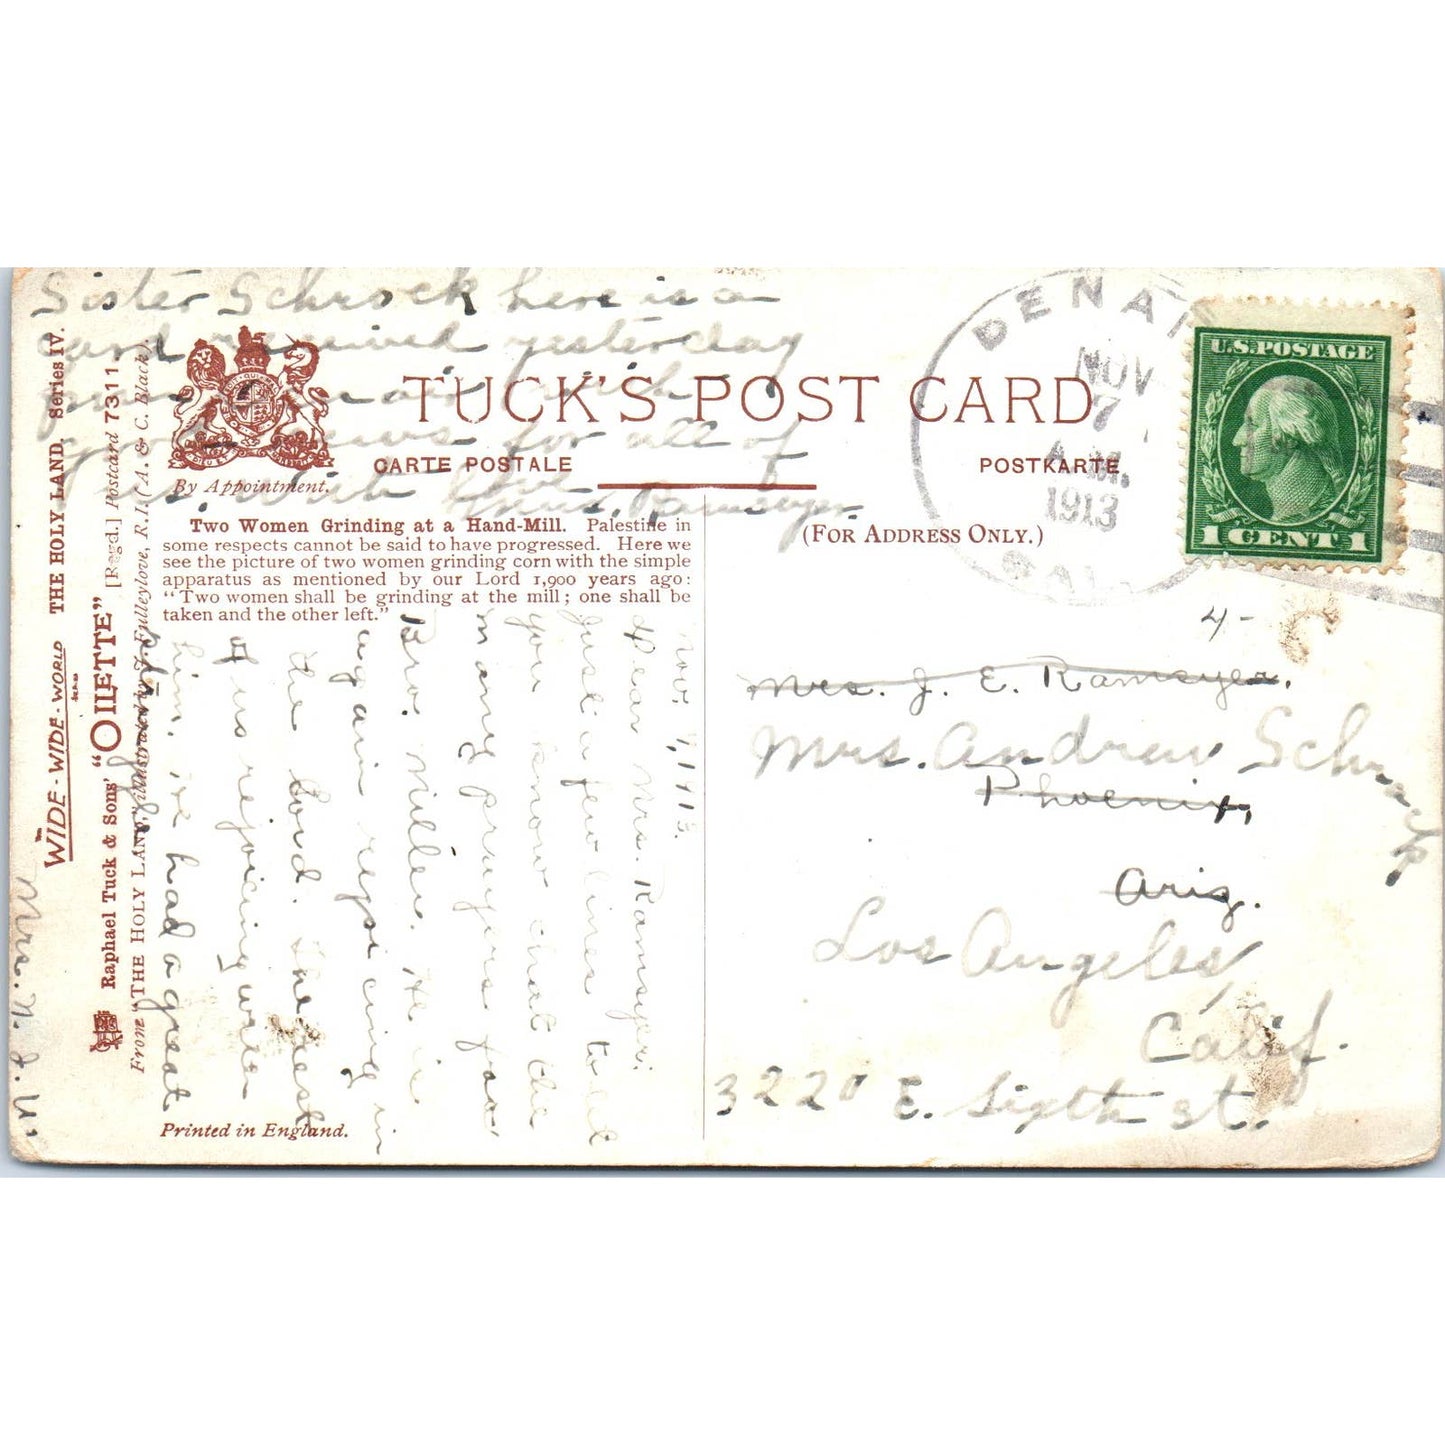 Sister Schrock here is a
card received yesterday
from
good news for all of
us. With love
Mrs. Ramseyer.
TUCK'S POST CARD
CARTE POSTALE
POSTKARTE
By Appointment.
(FOR ADDRESS ONLY.)
Two Women Grinding at a Hand-Mill. Palestine in
some respects cannot be said to have progressed. Here we
see the picture of two women grinding corn with the simple
apparatus as mentioned by our Lord 1,900 years ago:
"Two women shall be grinding at the mill; one shall be
taken and the other left."
WIDE-WIDE-WORLD THE HOLY LAND. Series IV.
Raphael Tuck & Sons' "OILETTE" [Regd.] Postcard 7311.
From "THE HOLY LAND," illustrated by J. Fulleylove, R.I. (A. & C. Black).
Printed in England.
Nov. 7, 1913.
Dear Mrs. Ramseyer:
Just a few lines to tell
you know that the
many prayers for
Bro. Miller. He is
again rejoicing in
the Lord. The rest
of us rejoicing with
him. We had a great
Mrs. N. J. W.
DENAIR
NOV
7
A.M.
1913
CAL.
U.S. POSTAGE
1 CENT 1
4-
Mrs. J. E. Ramseyer.
Mrs. Andrew Schrock
Phoenix,
Ariz.
Los Angeles
Calif.
3220 E. Sixth St.